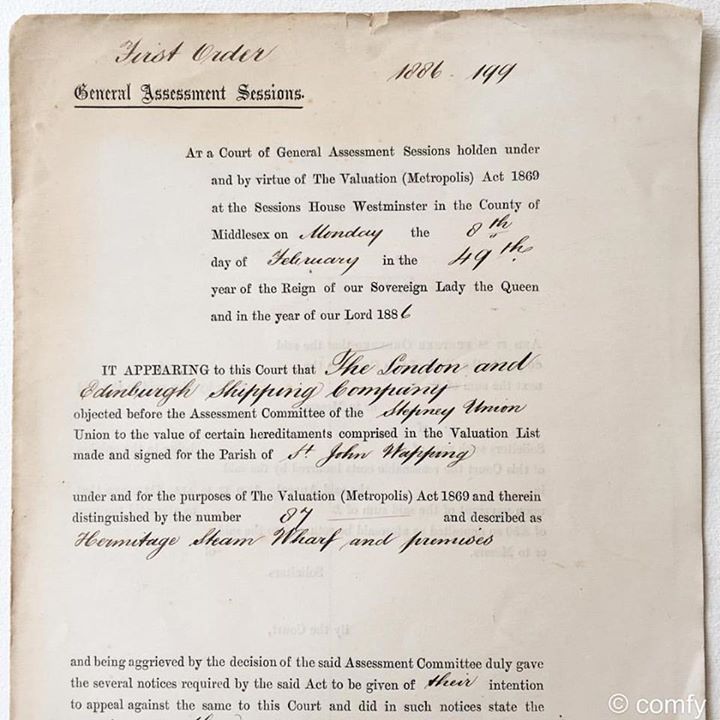 First Order
1886 - 199
General Assessment Sessions.
At a Court of General Assessment Sessions holden under
and by virtue of The Valuation (Metropolis) Act 1869
at the Sessions House Westminster in the County of
Middlesex on Monday the 8th
day of February in the 49th
year of the Reign of our Sovereign Lady the Queen
and in the year of our Lord 1886
IT APPEARING to this Court that The London and
Edinburgh Shipping Company
objected before the Assessment Committee of the Stepney Union
Union to the value of certain hereditaments comprised in the Valuation List
made and signed for the Parish of St John Wapping
under and for the purposes of The Valuation (Metropolis) Act 1869 and therein
distinguished by the number 87 and described as
Hermitage Steam Wharf and premises
and being aggrieved by the decision of the said Assessment Committee duly gave
the several notices required by the said Act to be given of their intention
to appeal against the same to this Court and did in such notices state the
© comfy